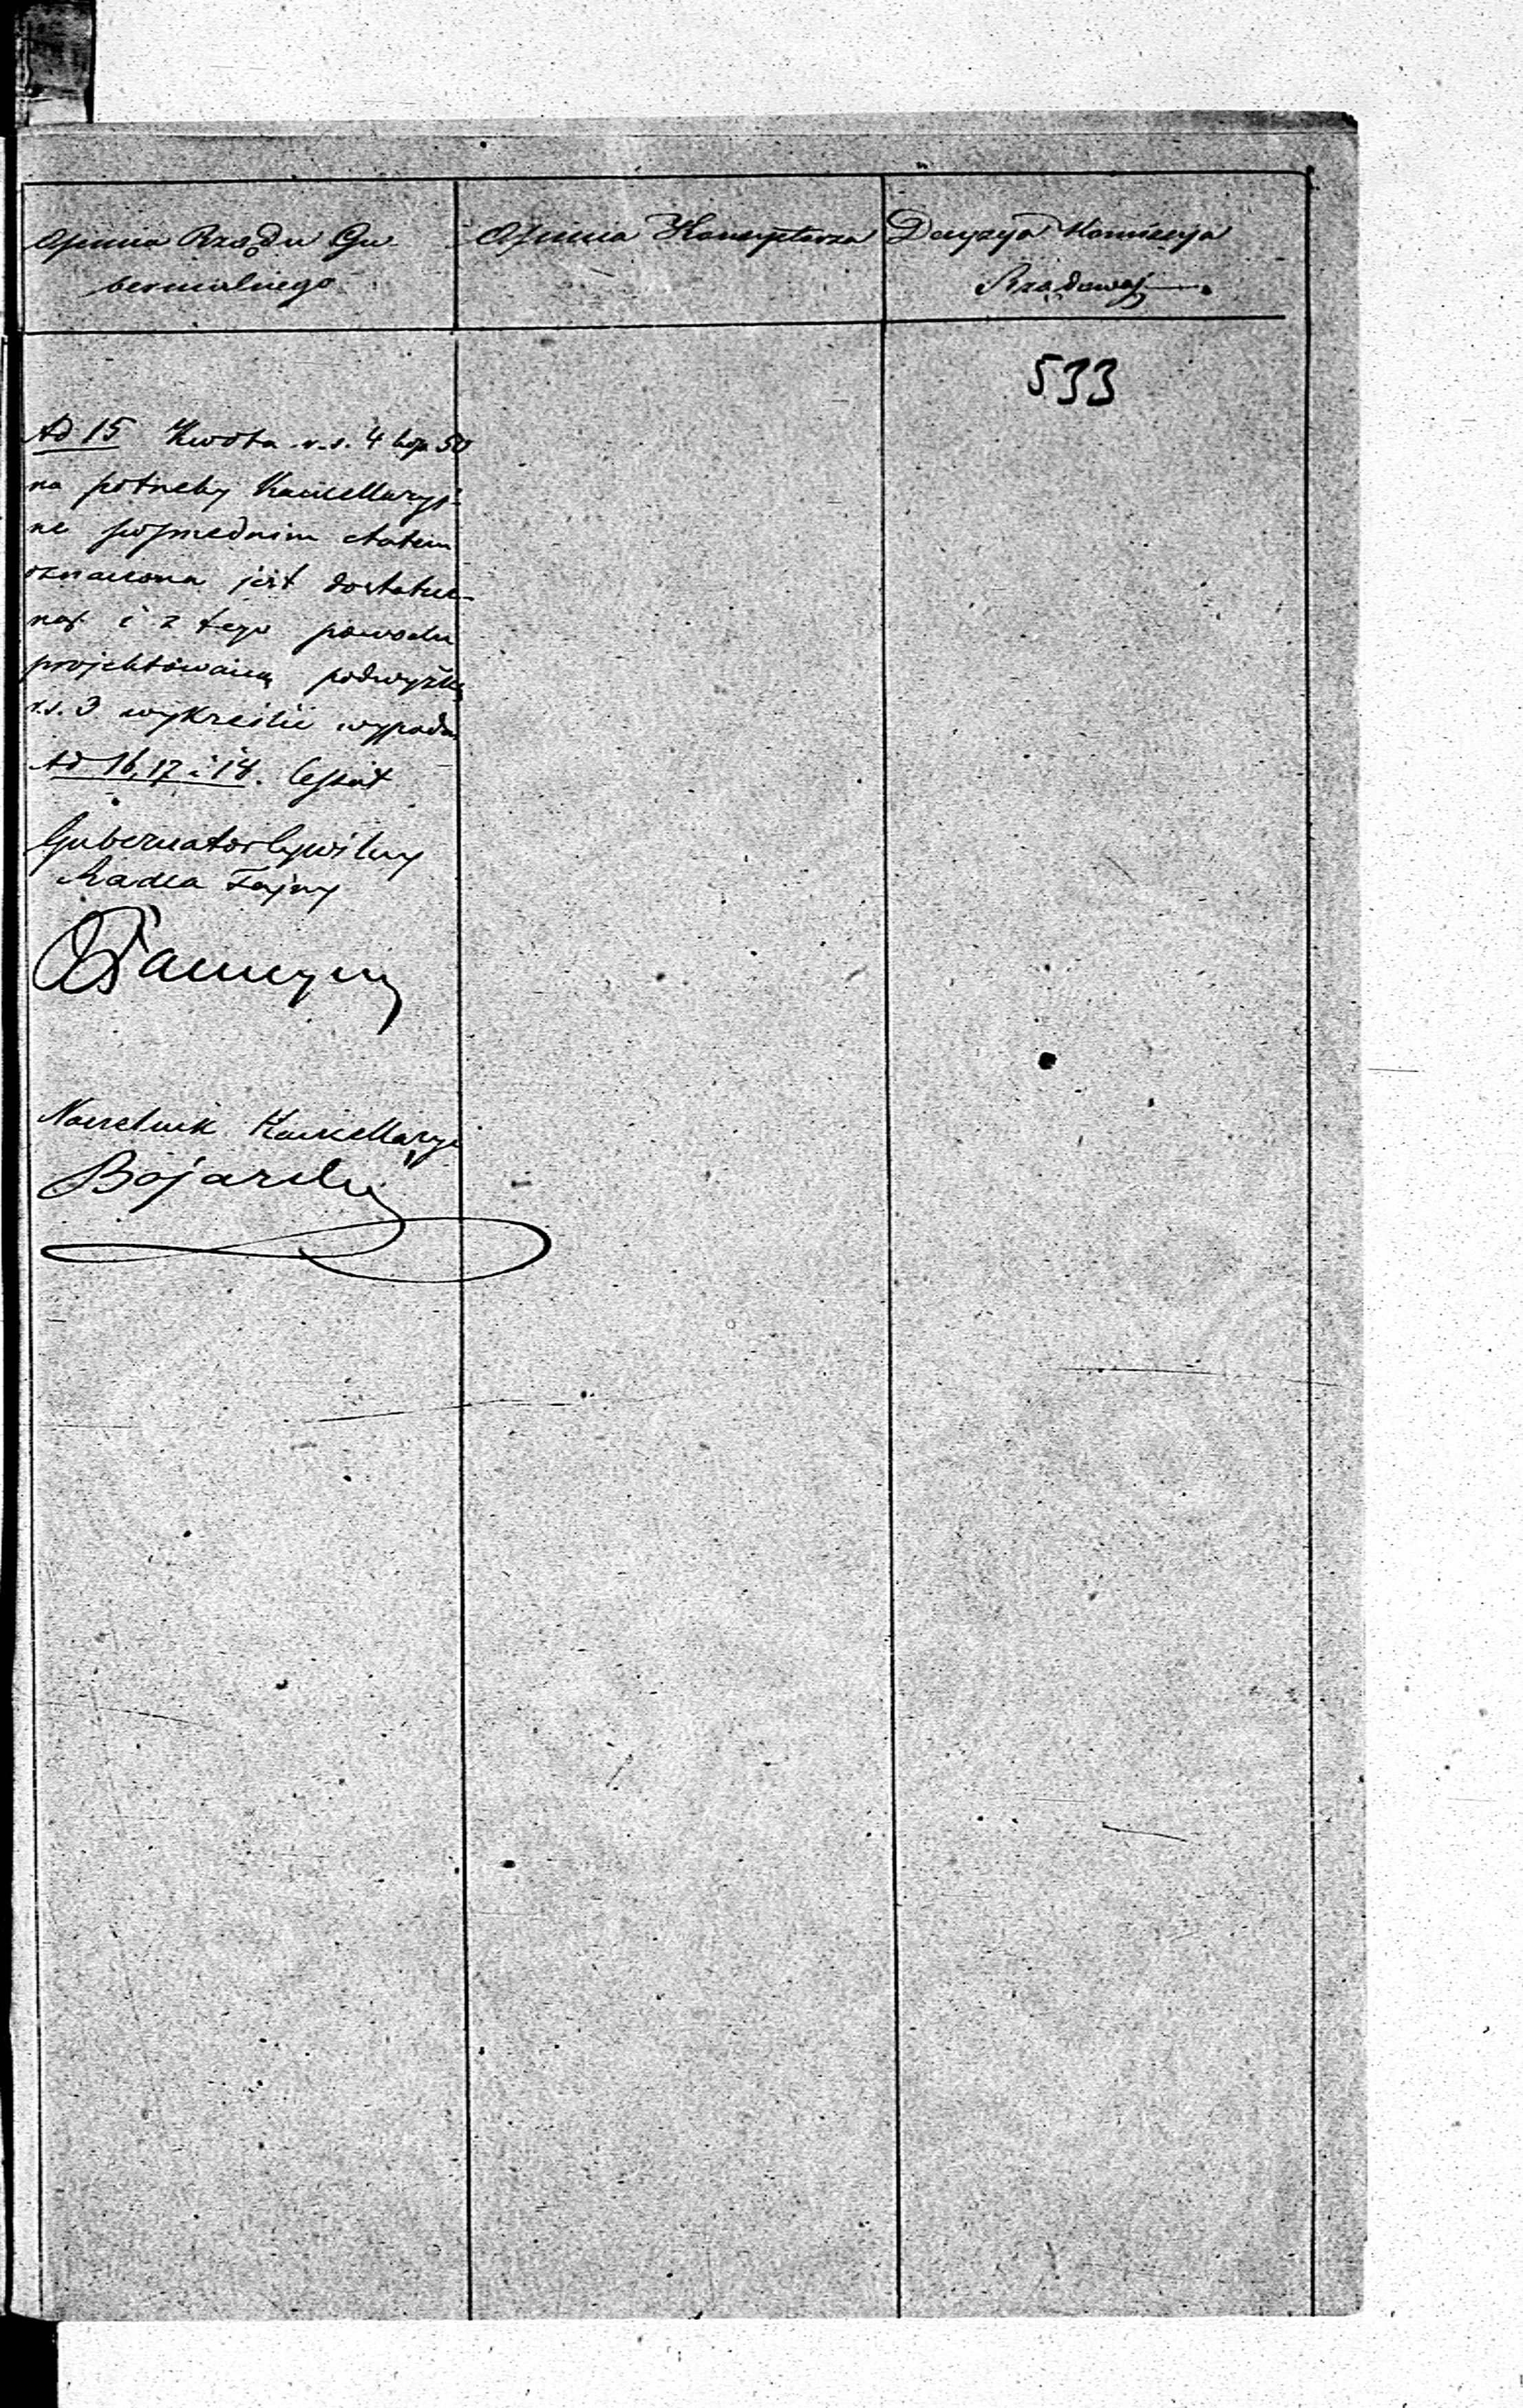 Opinia Rządu Gu
bernialnego
Opinia Koncyptarza
Decyzya Komissyi
Rządowej
533
Ad 15 Kwota r.s. 4 kop 50
na potrzeby Kancellaryj-
ne poprzednim etatem
oznaczona jest dostatecz-
ną i z tego powodu
projektowaną podwyżkę
r.s. 3 wykreślić wypada
Ad 16, 17 i 18. Cessat
Gubernator Cywilny
Radca Tajny
Naczelnik Kancellaryi
Bojarski